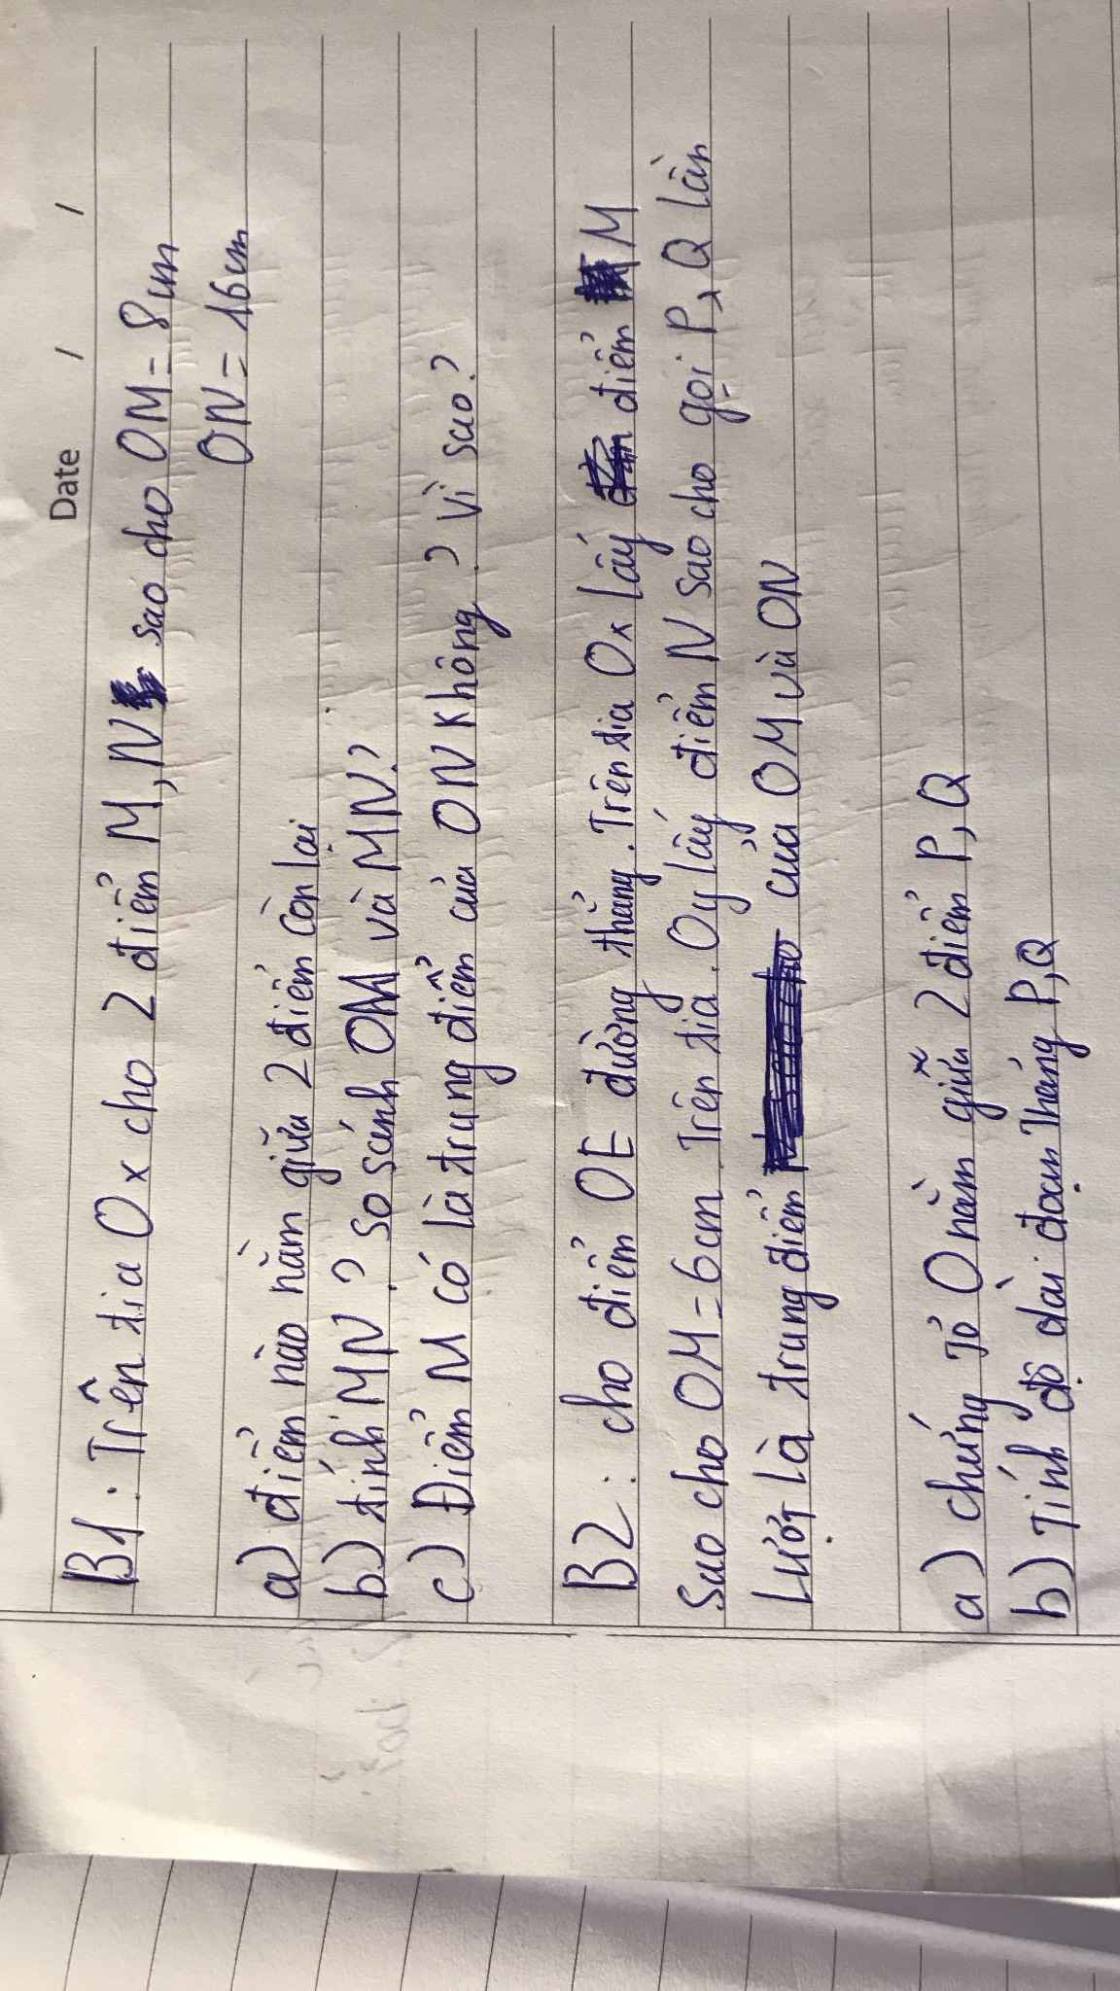 Date / /
B1: Trên tia Ox cho 2 điểm M, N sao cho OM = 8cm
ON = 16cm
a) điểm nào nằm giữa 2 điểm còn lại
b) tính MN? so sánh OM và MN?
c) Điểm M có là trung điểm của ON không? Vì sao?
B2: cho điểm OE đường thẳng. Trên tia Ox lấy điểm M
sao cho OM = 6cm. Trên tia Oy lấy điểm N sao cho gọi P, Q lần
Lượt là trung điểm của OM và ON
a) chứng tỏ O nằm giữa 2 điểm P, Q
b) Tính độ dài đoạn Thẳng P,Q